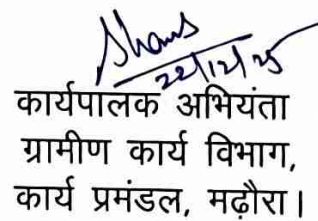 22/12/25
कार्यपालक अभियंता
ग्रामीण कार्य विभाग,
कार्य प्रमंडल, मढ़ौरा।